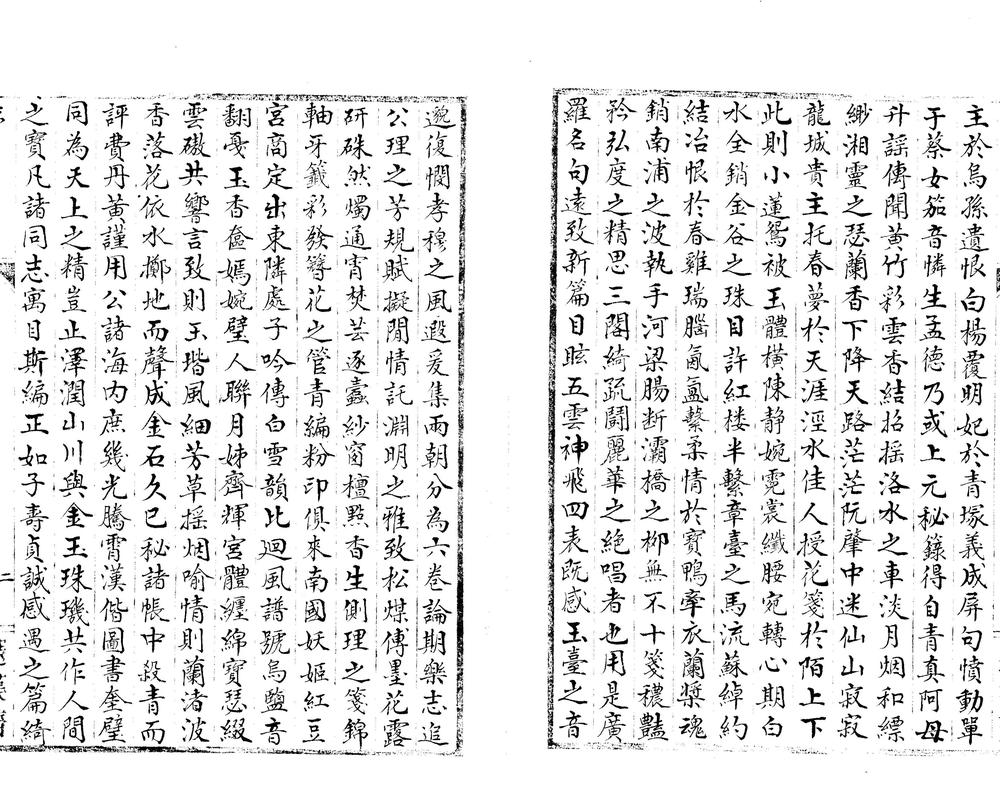 主於烏孫遺恨白楊覆明妃於青塚義成屏句憤動單
于蔡女笳音憐生孟德乃或上元秘籙得自青真阿母
升謡傳聞黄竹彩雲香結招摇洛水之車淡月烟和縹
緲湘靈之瑟蘭香下降天路茫茫阮肇中迷仙山寂寂
龍城貴主托春夢於天涯涇水佳人授花箋於陌上下
此則小蓮鴛被玉體横陳静婉霓裳纖腰宛轉心期白
水全銷金谷之珠目許紅楼半繫章臺之馬流蘇綽約
結冶恨於春雞瑞腦氤氳繫柔情於寶鴨牽衣蘭槳魂
銷南浦之波執手河梁腸断灞橋之柳無不十箋穠豔
矜弘度之精思三閣綺疏鬪麗華之絶唱者也用是廣
羅名句遠致新篇目眩五雲神飛四表既感玉臺之音
邈復憫孝穆之風遐爰集兩朝分為六卷論期樂志追
公理之芳規賦擬閒情託淵明之雅致松煤傳墨花露
研硃然燭通宵焚芸逐蠹紗窗檀㸃香生側理之箋錦
軸牙籤彩發簪花之管青編粉印俱來南國妖姬紅豆
宮商定出東隣處子吟傳白雪韻比迴風譜號烏鹽音
翻戛玉香奩嫣婉璧人聯月姊齊輝宮體纏綿寶瑟綴
雲璈共響言致則玉堦風細芳草摇烟喻情則蘭渚波
香落花依水擲地而聲成金石久已秘諸帳中殺青而
評費丹黄謹用公諸海内庶幾光騰霄漢偕圖書奎璧
同為天上之精豈止澤潤山川與金玉珠璣共作人間
之寶凡諸同志寓目斯編正如子壽貞誠感遇之篇綺
二